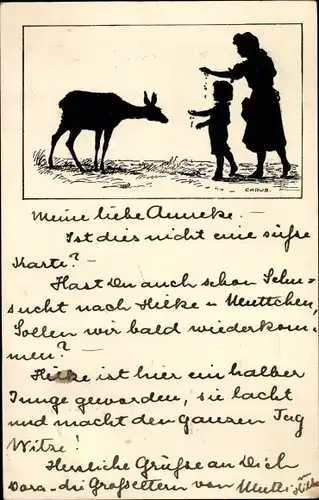 CARUS.
Meine liebe Anneke. —
Ist dies nicht eine süße
Karte? —
Hast Du auch schon Sehn-
sucht nach Hilke u Muttchen,
Sollen wir bald wiederkom-
men? —
Hilke ist hier ein halber
Junge geworden, sie lacht
und macht den ganzen Tag
Witze!
Herzliche Grüße an Dich
Dora - die Großeltern von Mutti u
Hilke